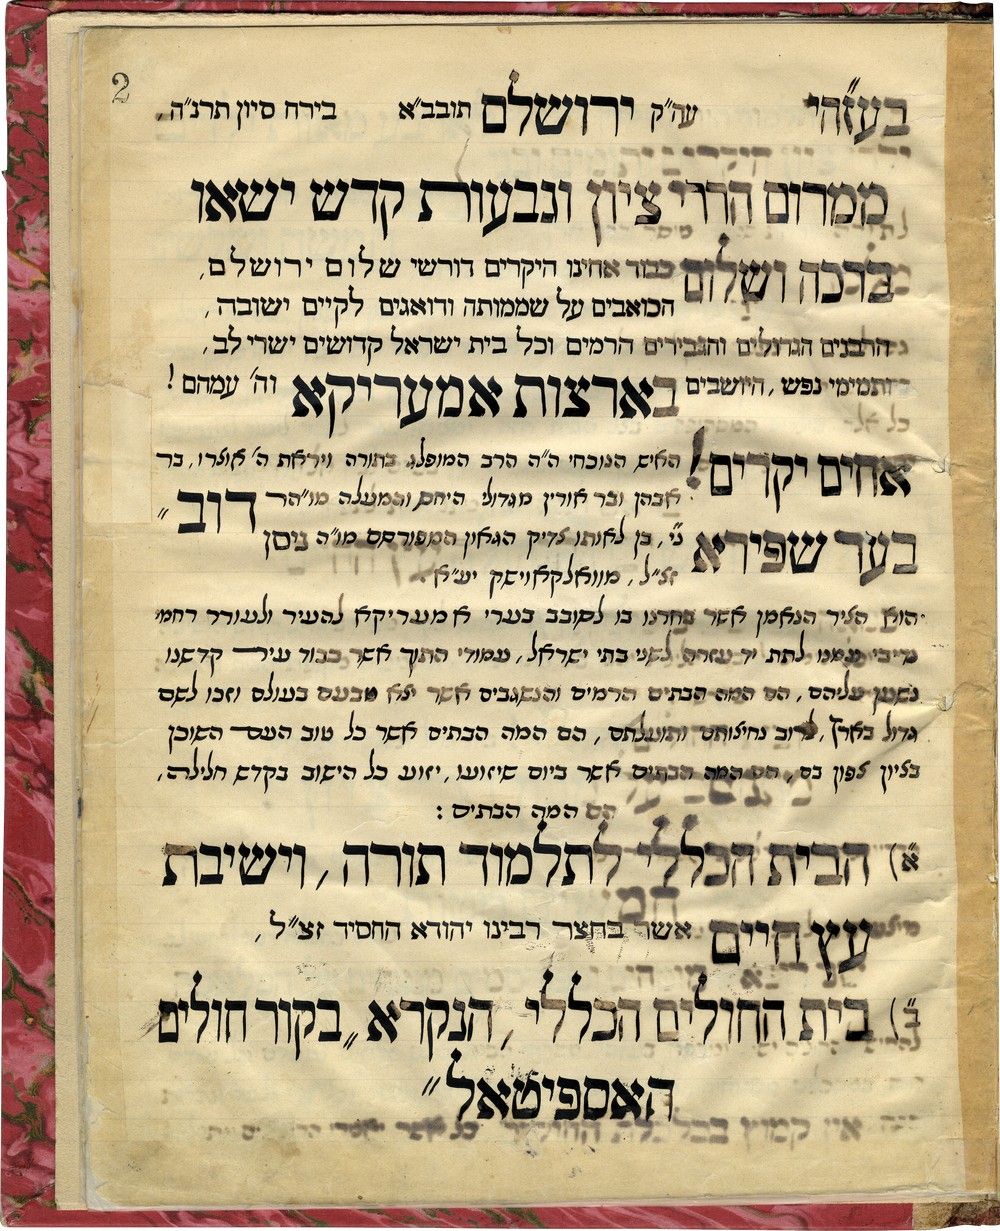 2
בעזהי״ עה״ק ירושלם תובב״א בירח סיון תרנ״ה.
ממרום הררי ציון וגבעות קדש ישאו
ברכה ושלום כבוד אחינו היקרים דורשי שלום ירושלם,
הכואבים על שממותה ודואגים לקיים ישובה,
הרבנים הגדולים והגבירים הרמים וכל בית ישראל קדושים ישרי לב,
ותמימי נפש, היושבים בארצות אמעריקא וה׳ עמהם!
אחים יקרים! האיש הנוכחי ה״ה הרב המופלג בתורה ויראת ה׳ אוצרו, בר
אבהן ובר אורין מגדולי היחס והמעלה מו״הר דוב״
בער שפירא ני״, בן לאותו צדיק הגאון המפורסם מו״ה ניסן
זצ״ל, מוואלקאווישק יע״א
הוא הציר הנאמן אשר בחרנו בו לסובב בערי אמעריקא להעיר ולעורר רחמי
נדיבי עמנו לתת יד עזרה לשני בתי ישראל, עמודי התוך אשר כבוד עיר קדשנו
נשען עליהם, הם המה הבתים הרמים והנשגבים אשר יצא טבעם בעולם וזכו לשם
גדול בארץ, לרוב נחיצותם ותועלתם, הם המה הבתים אשר כל טוב העם השוכן
בציון צפון בם, הם המה הבתים אשר ביום שיזועו, יזוע כל הישוב בקדש חלילה,
הם המה הבתים:
א״) הבית הכללי לתלמוד תורה, וישיבת
עץ חיים אשר בחצר רבינו יהודא החסיד זצ״ל,
ב״) בית החולים הכללי, הנקרא „בקור חולים
האספיטאל״